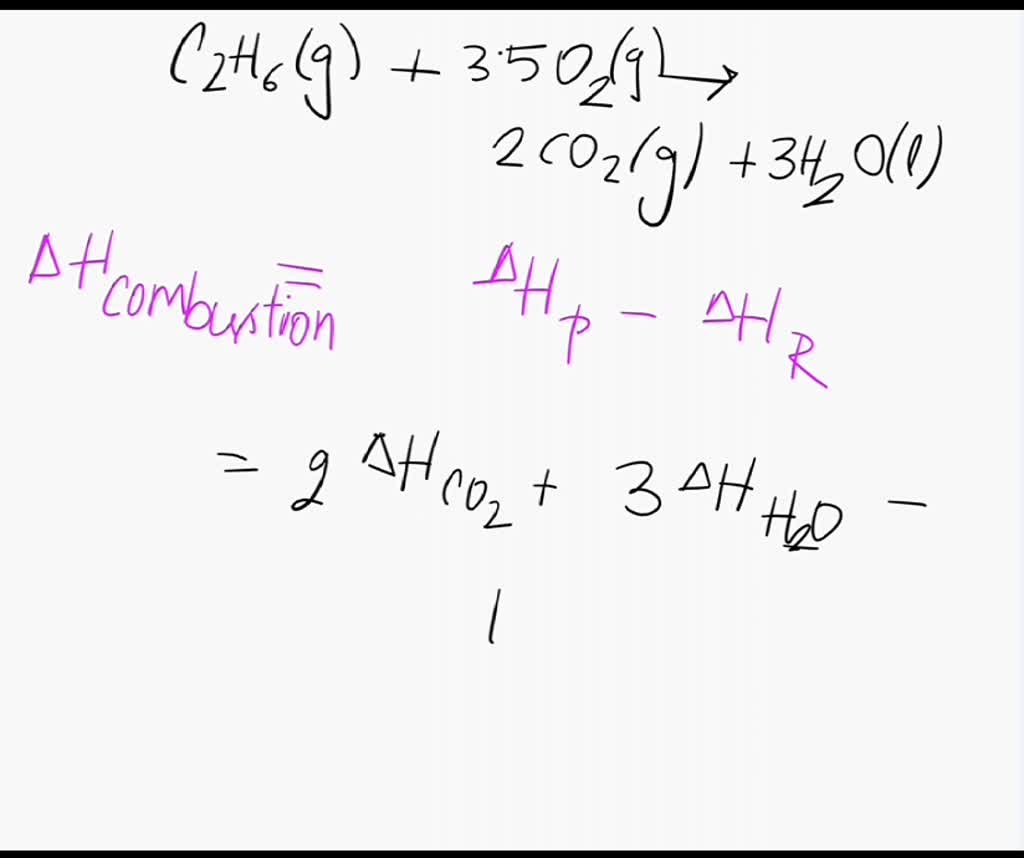 C₂H₆(g) + 3.5O₂(g) →
2CO₂(g) + 3H₂O(l)
ΔH combustion = ΔH_P − ΔH_R
= 2 ΔH_CO₂ + 3 ΔH_H₂O −
1